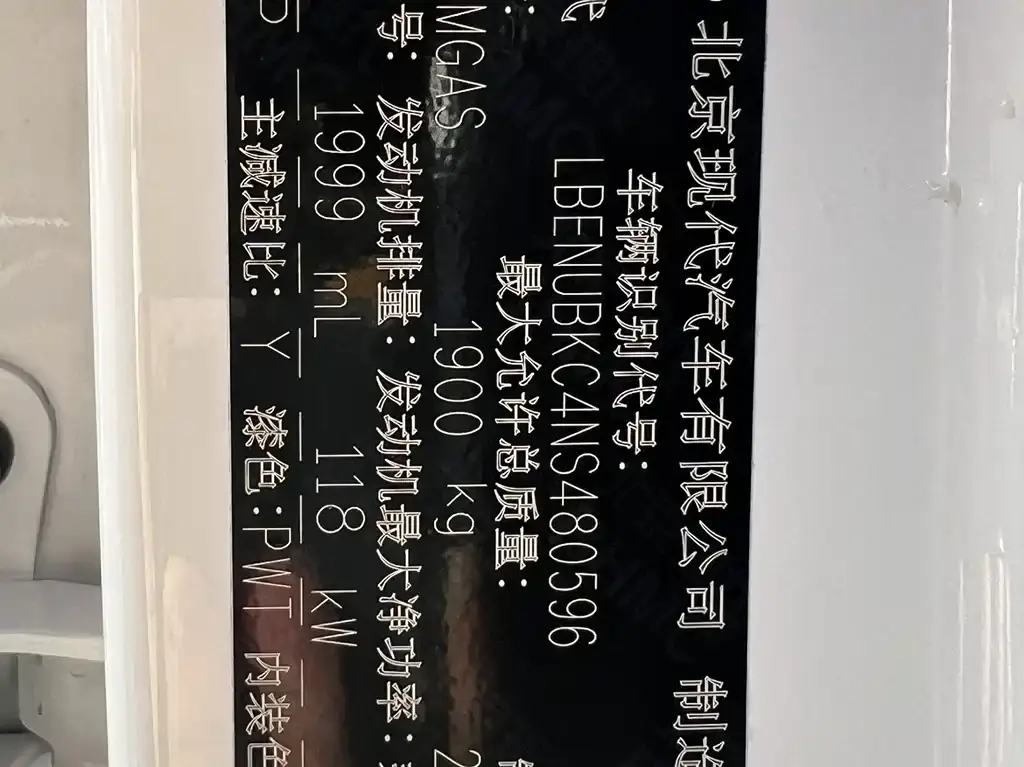 北京现代汽车有限公司 制造
车辆识别代号:
LBENUBKC4NS480596
最大允许总质量:
MGAS 1900 kg 2
号: 发动机排量: 发动机最大净功率:
1999 mL 118 kW
主减速比: Y 漆色:PWT 内装色